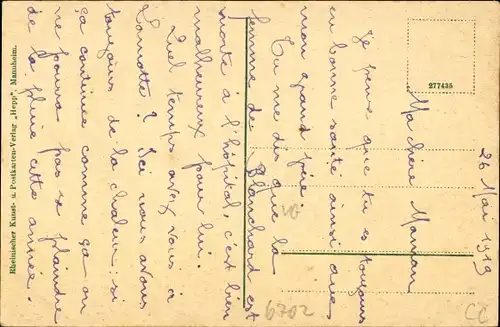 26 Mai 1919
Ma chère Maman
Je pense que tu es toujours
en bonne santé ainsi que
mon grand père.
Tu me dis que la
femme de Blanchard est
morte à l'hôpital, c'est bien
malheureux pour lui.
Quel temps avez vous à
Lamotte ? Ici nous avons
toujours de la chaleur : si
ça continue comme ça on
ne pourra pas se plaindre
de la pluie cette année.
277435
Rheinischer Kunst- u. Postkarten-Verlag „Hepp“, Mannheim.
6702
CC